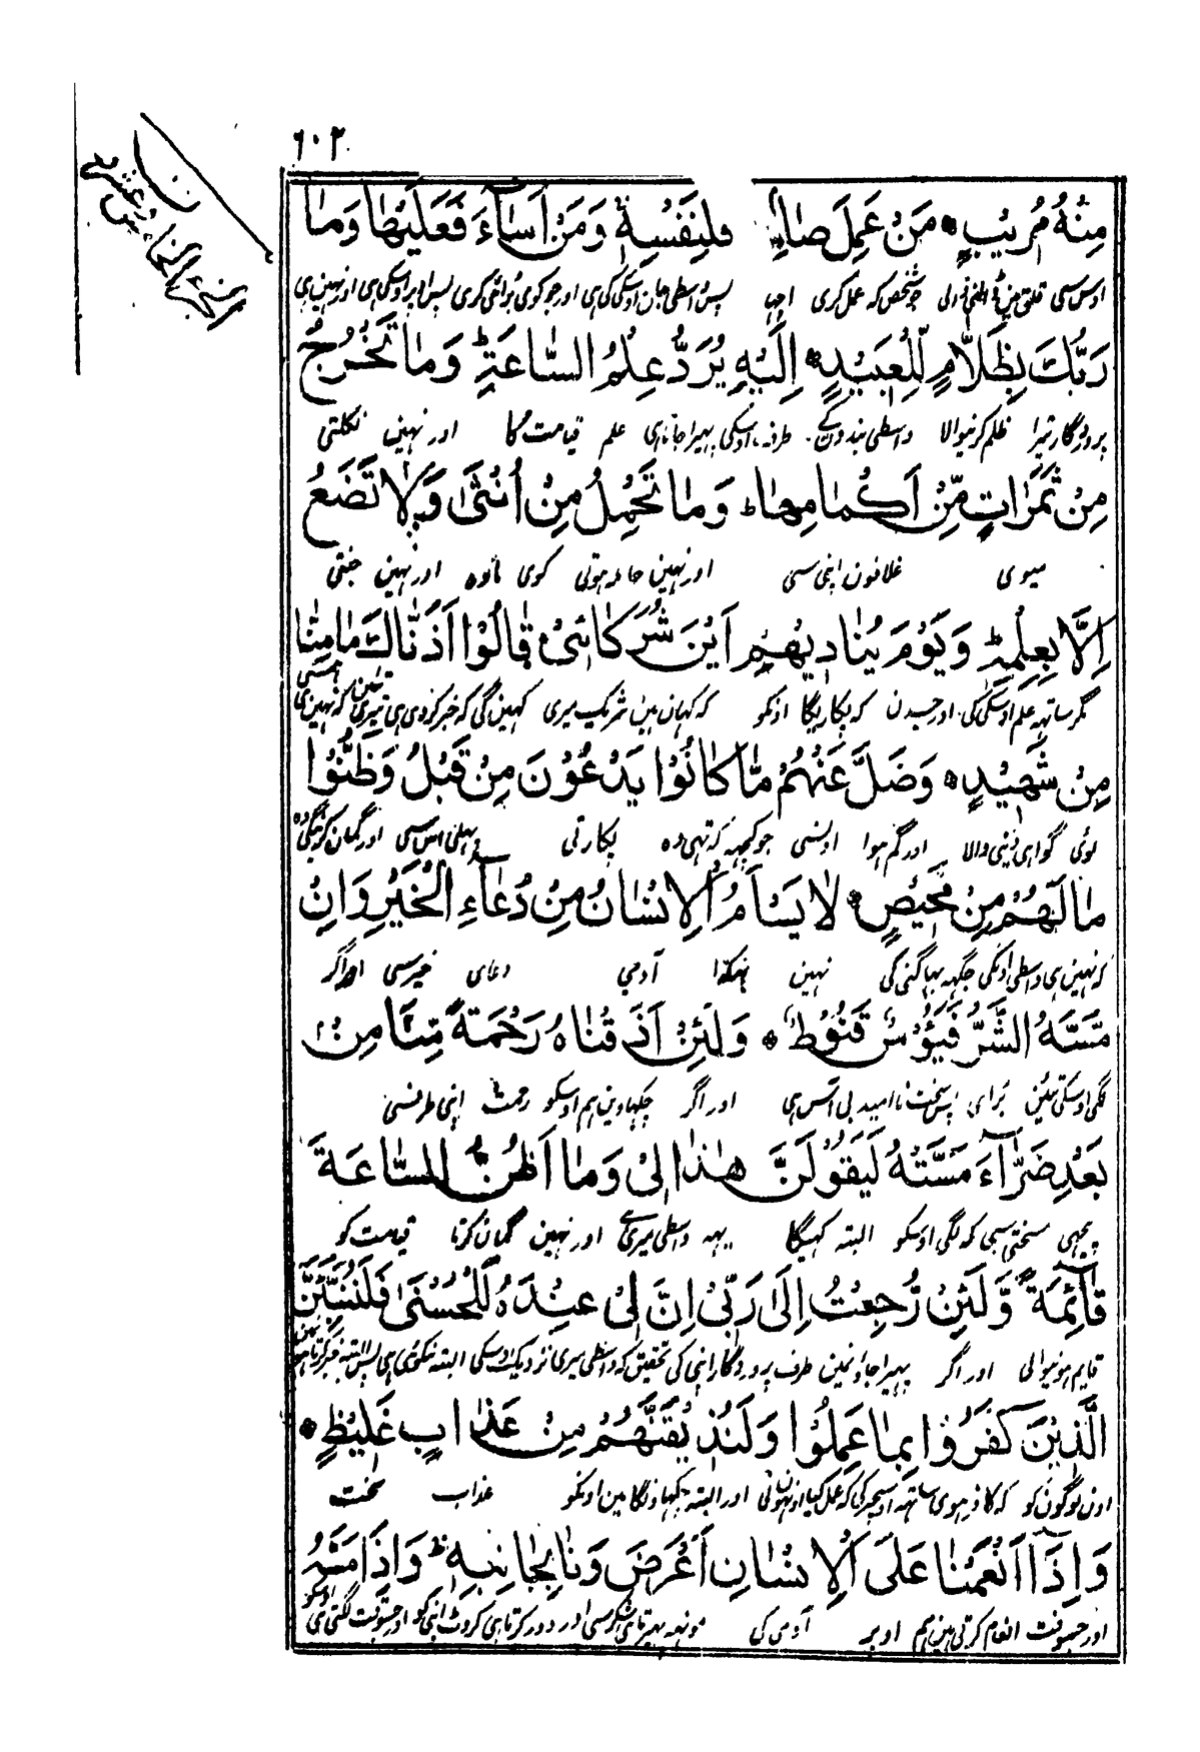 ٦٠٢
الجزء الخامس
مِنْهُ مُرِيْبٍ مَنْ عَمِلَ صَالِـ فَلِنَفْسِهٖ وَمَنْ اَسَآءَ فَعَلَيْهَا وَمَا
اوس سی قلق مین ڈالنی والی جو شخص کہ عمل کری اچہا پس واسطی جان اوسکی کی ہی اور جو کوی برائی کری پس اوپر اوسکی ہی اور نہین ہی
رَبُّكَ بِظَلَّامٍ لِّلْعَبِيْدِ اِلَيْهِ يُرَدُّ عِلْمُ السَّاعَةِ ط وَمَا تَخْرُجُ
پروردگار تیرا ظلم کرنیوالا واسطی بندون کے طرف اوسکی پہیرا جاتا ہی علم قیامت کا اور نہین نکلتی
مِنْ ثَمَرَاتٍ مِّنْ اَكْمَامِهَا وَمَا تَحْمِلُ مِنْ اُنْثٰى وَلَا تَضَعُ
میوی غلافون اپنی سی اور نہین حاملہ ہوتی کوی مادہ اور نہین جنتی
اِلَّا بِعِلْمِهٖ ط وَيَوْمَ يُنَادِيْهِمْ اَيْنَ شُرَكَائِىْ قَالُوْا اٰذَنّٰاكَ مَا مِنَّا
مگر ساتہہ علم اوسکی کی اور جسدن کہ پکاریگا اونکو کہ کہان ہین شریک میری کہین گی کہ خبر کردی ہی تیری تئین کہ نہین ہی ہم سی
مِنْ شَهِيْدٍ وَضَلَّ عَنْهُمْ مَّا كَانُوْا يَدْعُوْنَ مِنْ قَبْلُ وَظَنُّوْا
کوئی گواہی دینی والا اور گم ہوا اونسی جو کچہہ کہ تہی وہ پکارتی پہلی اس سی اور گمان کرینگی وہ
مَا لَهُمْ مِنْ مَّحِيْصٍ لَا يَسْاَمُ الْاِنْسَانُ مِنْ دُعَآءِ الْخَيْرِ وَاِنْ
کہ نہین ہی واسطی اونکی جگہہ بہاگنی کی نہین تہکتا آدمی دعای خیر سی اور اگر
مَّسَّهُ الشَّرُّ فَيَئُوْسٌ قَنُوْطٌ وَلَئِنْ اَذَقْنَاهُ رَحْمَةً مِّنَّا مِنْ
لگی اوسکی تئین برای پس سخت ناامید بی آس ہی اور اگر چکہاوین ہم اوسکو رحمت اپنی طرفسی
بَعْدِ ضَرَّآءَ مَسَّتْهُ لَيَقُوْلَنَّ هٰذَا لِىْ وَمَا اَظُنُّ السَّاعَةَ
پیچہی سختی سی کہ لگی اوسکو البتہ کہیگا یہہ واسطی میری اور نہین گمان کرتا قیامت کو
قَآئِمَةً وَّلَئِنْ رُّجِعْتُ اِلٰى رَبِّىْ اِنَّ لِىْ عِنْدَهٗ لَلْحُسْنٰى فَلَنُنَبِّئَنَّ
قایم ہونیوالی اور اگر پہیرا جاؤنمین طرف پروردگار اپنی کی تحقیق کہ واسطی میری نزدیک اوسکی البتہ نکوئی ہی پس البتہ خبر
الَّذِيْنَ كَفَرُوْا بِمَا عَمِلُوْا وَلَنُذِيْقَنَّهُمْ مِنْ عَذَابٍ غَلِيْظٍ
اون لوگون کو کہ کافر ہوی ساتہہ اوسچیز کی کہ عمل کیا اونہون نی اور البتہ چکہاونگا مین اونکو عذاب سخت
وَاِذَا اَنْعَمْنَا عَلَى الْاِنْسَانِ اَعْرَضَ وَنَاٰ بِجَانِبِهٖ ط وَاِذَا مَسَّهُ
اور جسوقت انعام کرتی ہین ہم اوپر آدمی کی مونہہ پہیرتا ہی شکر سی اور دور کرتا ہی کروٹ اپنی کو اور جسوقت لگتی ہی اوسکو